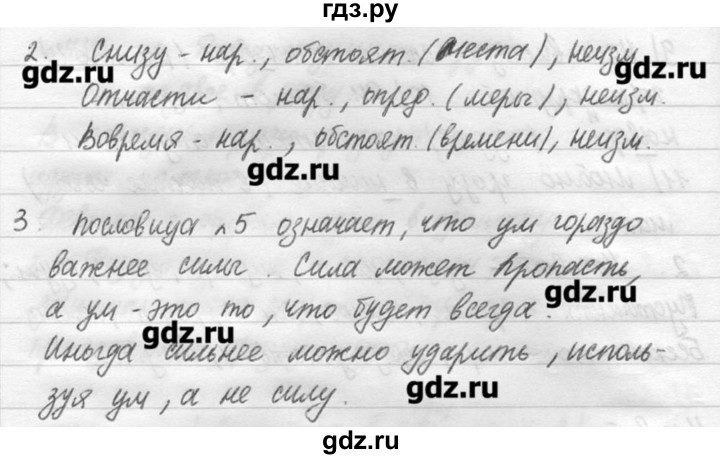 гдз.ру
2. Снизу - нар., обстоят. (места), неизм.
gdz.ru gdz.ru
Отчасти - нар., опред. (меры), неизм.
Вовремя - нар., обстоят. (времени), неизм.
gdz.ru
3. Пословица 5 означает, что ум гораздо
важнее силы. Сила может пропасть,
а ум - это то, что будет всегда.
gdz.ru
gdz.ru
Иногда сильнее можно ударить, исполь-
зуя ум, а не силу.
gdz.ru
gdz.ru